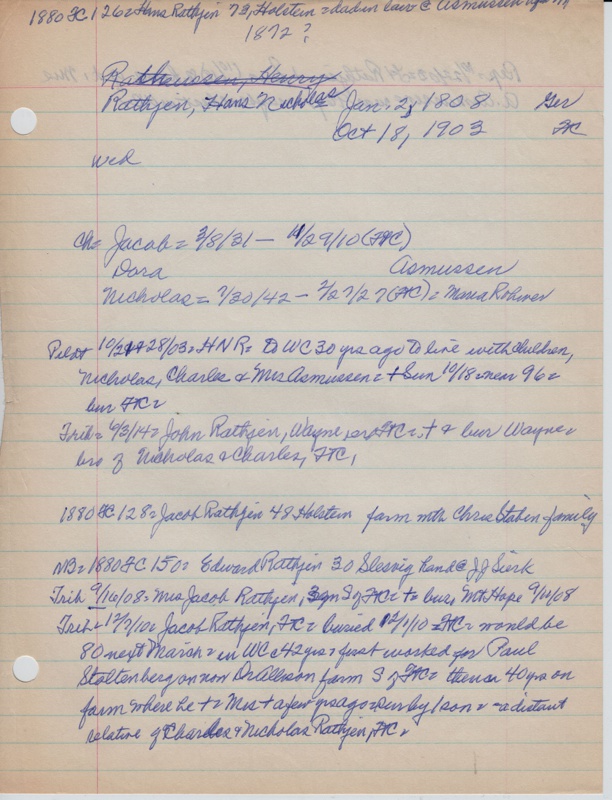 1880 FC 126 = Hans Rathjen 73, Holstein = dad in law @ Asmussen
1872?
Rathjen, Hans Nicholas Jan. 2, 1808 Ger
Oct 18, 1903 FC
wid
Ch = Jacob = 3/8/31 — 11/29/10 (FC)
Dora Asmussen
Nicholas = 7/30/42 — 2/27/27 (FC) = Maria Rohwer
Pilot 10/21 + 28/03 = HNR = to WC 30 yrs ago to live with children,
Nicholas, Charles & Mrs Asmussen = + Sun 10/18 = near 96 =
bur FC =
Trib = 6/3/14 = John Rathjen, Wayne, FC = + & bur Wayne =
bro of Nicholas & Charles, FC,
1880 FC 128 = Jacob Rathjen 48 Holstein farm with Chris Staben family
NB = 1880 FC 150 = Edward Rathjen 30 Slesvig hand @ J J Sierk
Trib 9/16/08 = Mrs Jacob Rathjen, S of FC = + bur, Mt Hope 9/11/08
Trib = 12/7/10 = Jacob Rathjen, FC = buried 12/1/10 = FC = would be
80 next March = in WC 42 yrs = first worked for Paul
Stoltenberg on now Dr Allison farm S of FC = then on 40 yrs on
farm where he + = Mrs + a few yrs ago = sur by 1 son = a distant
relative of Charles & Nicholas Rathjen, FC =